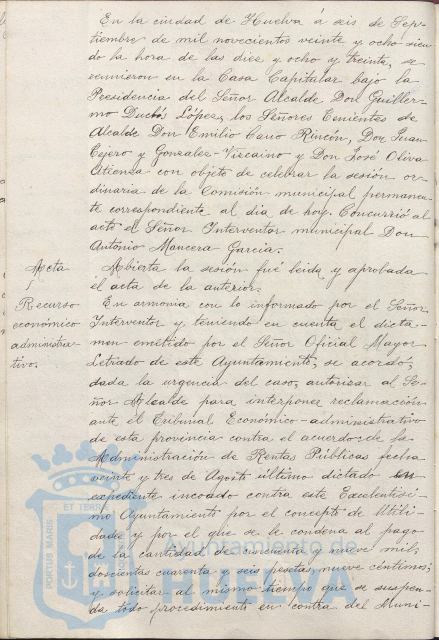 En la ciudad de Huelva á seis de Sep-
tiembre de mil novecientos veinte y ocho sien-
do la hora de las diez y ocho y treinta, se
reunieron en la Casa Capitular bajo la
Presidencia del Señor Alcalde Don Guiller-
mo Duclós López, los Señores Tenientes de
Alcalde Don Emilio Cano Rincón, Don Juan
Tejero y Gonzalez-Vizcaino y Don José Oliva
Atienza con objeto de celebrar la sesión or-
dinaria de la Comisión municipal permanen-
te correspondiente al dia de hoy. Concurrió al
acto el Señor Interventor municipal Don
Antonio Mancera Garcia.
Acta
Abierta la sesión fué leida y aprobada
el acta de la anterior.
Recurso
económico
administra-
tivo.
En armonia con lo informado por el Señor
Interventor y teniendo en cuenta el dicta-
men emitido por el Señor Oficial Mayor
Letrado de este Ayuntamiento, se acordó,
dada la urgencia del caso, autorizar al Se-
ñor Alcalde para interponer reclamación
ante el Tribunal Económico-administrativo
de esta provincia contra el acuerdo de la
Administración de Rentas Públicas fecha
veinte y tres de Agosto último dictado en
expediente incoado contra este Excelentísi-
mo Ayuntamiento por el concepto de Utili-
dades y por el que se le condena al pago
de la cantidad de cincuenta y nueve mil,
doscientas cuarenta y seis pesetas, nueve céntimos;
y solicitar al mismo tiempo que se suspen-
da todo procedimiento en contra del Muni-
PORTUS MARIS ET TERRAE
Ayuntamiento de
HUELVA